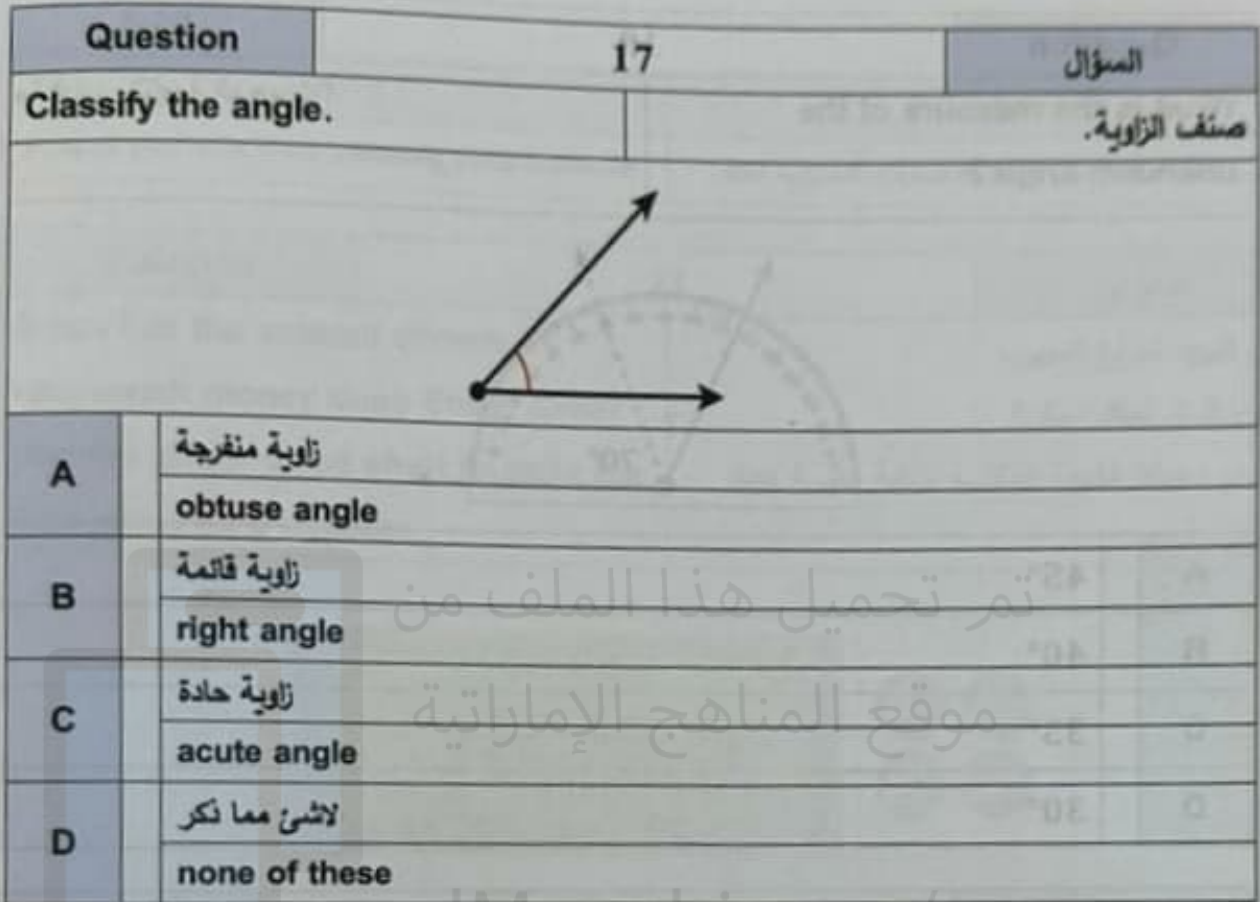 Question 17 السؤال
Classify the angle.
صنف الزاوية.
A
زاوية منفرجة
obtuse angle
B
زاوية قائمة
right angle
C
زاوية حادة
acute angle
D
لاشئ مما ذكر
none of these
تم تحميل هذا الملف من
موقع المناهج الإماراتية